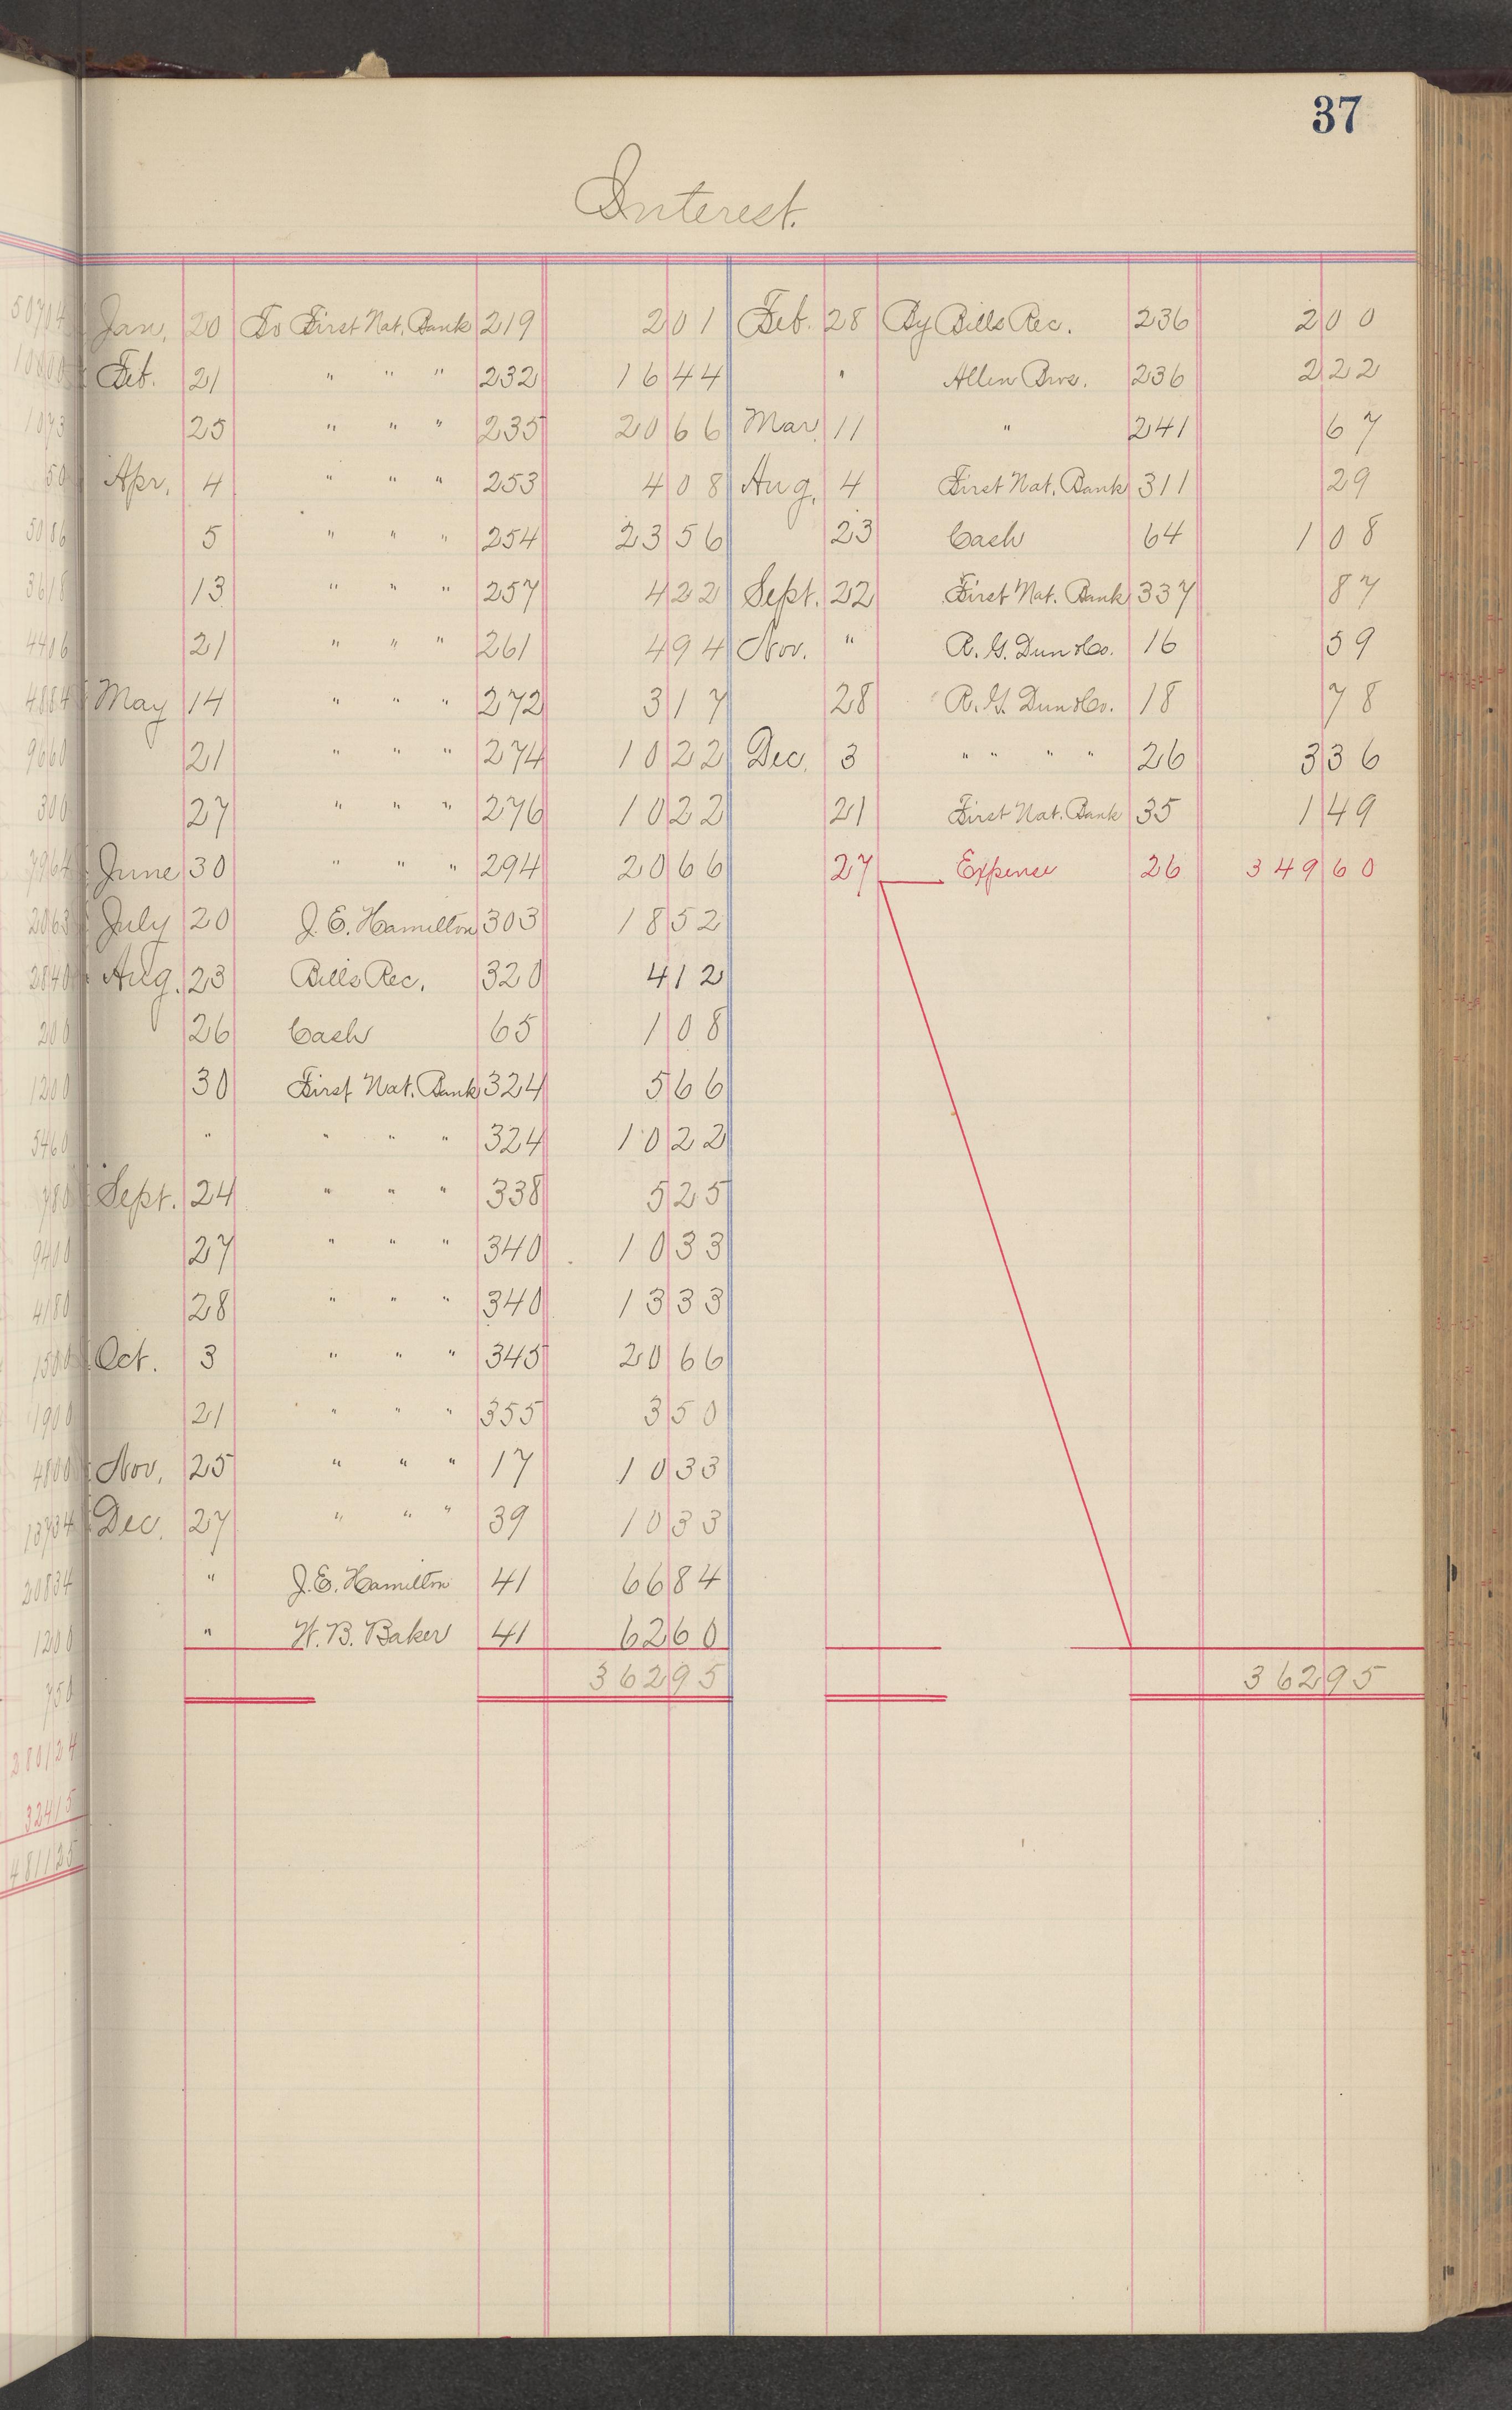 37
Interest.
Jan. 20 To First Nat. Bank 219 2 01 Feb. 28 By Bills Rec. 236 2 00
Feb. 21 " " " 232 16 44 " Allen Bros. 236 2 22
25 " " " 235 20 66 Mar. 11 " 241 67
Apr. 4 " " " 253 4 08 Aug. 4 First Nat. Bank 311 29
5 " " " 254 23 56 23 Cash 64 1 08
13 " " " 257 4 22 Sept. 22 First Nat. Bank 337 87
21 " " " 261 4 94 Nov. " R. G. Dun & Co. 16 59
May 14 " " " 272 3 17 28 R. G. Dun & Co. 18 78
21 " " " 274 10 22 Dec. 3 " " " " 26 3 36
27 " " " 276 10 22 21 First Nat. Bank 35 1 49
June 30 " " " 294 20 66 27 Expense 26 349 60
July 20 J. E. Hamilton 303 18 52
Aug. 23 Bills Rec. 320 4 12
26 Cash 65 1 08
30 First Nat. Bank 324 5 66
" " " " 324 10 22
Sept. 24 " " " 338 5 25
27 " " " 340 10 33
28 " " " 340 13 33
Oct. 3 " " " 345 20 66
21 " " " 355 3 50
Nov. 25 " " " 17 10 33
Dec. 27 " " " 39 10 33
" J. E. Hamilton 41 66 84
" W. B. Baker 41 62 60
362 95 362 95